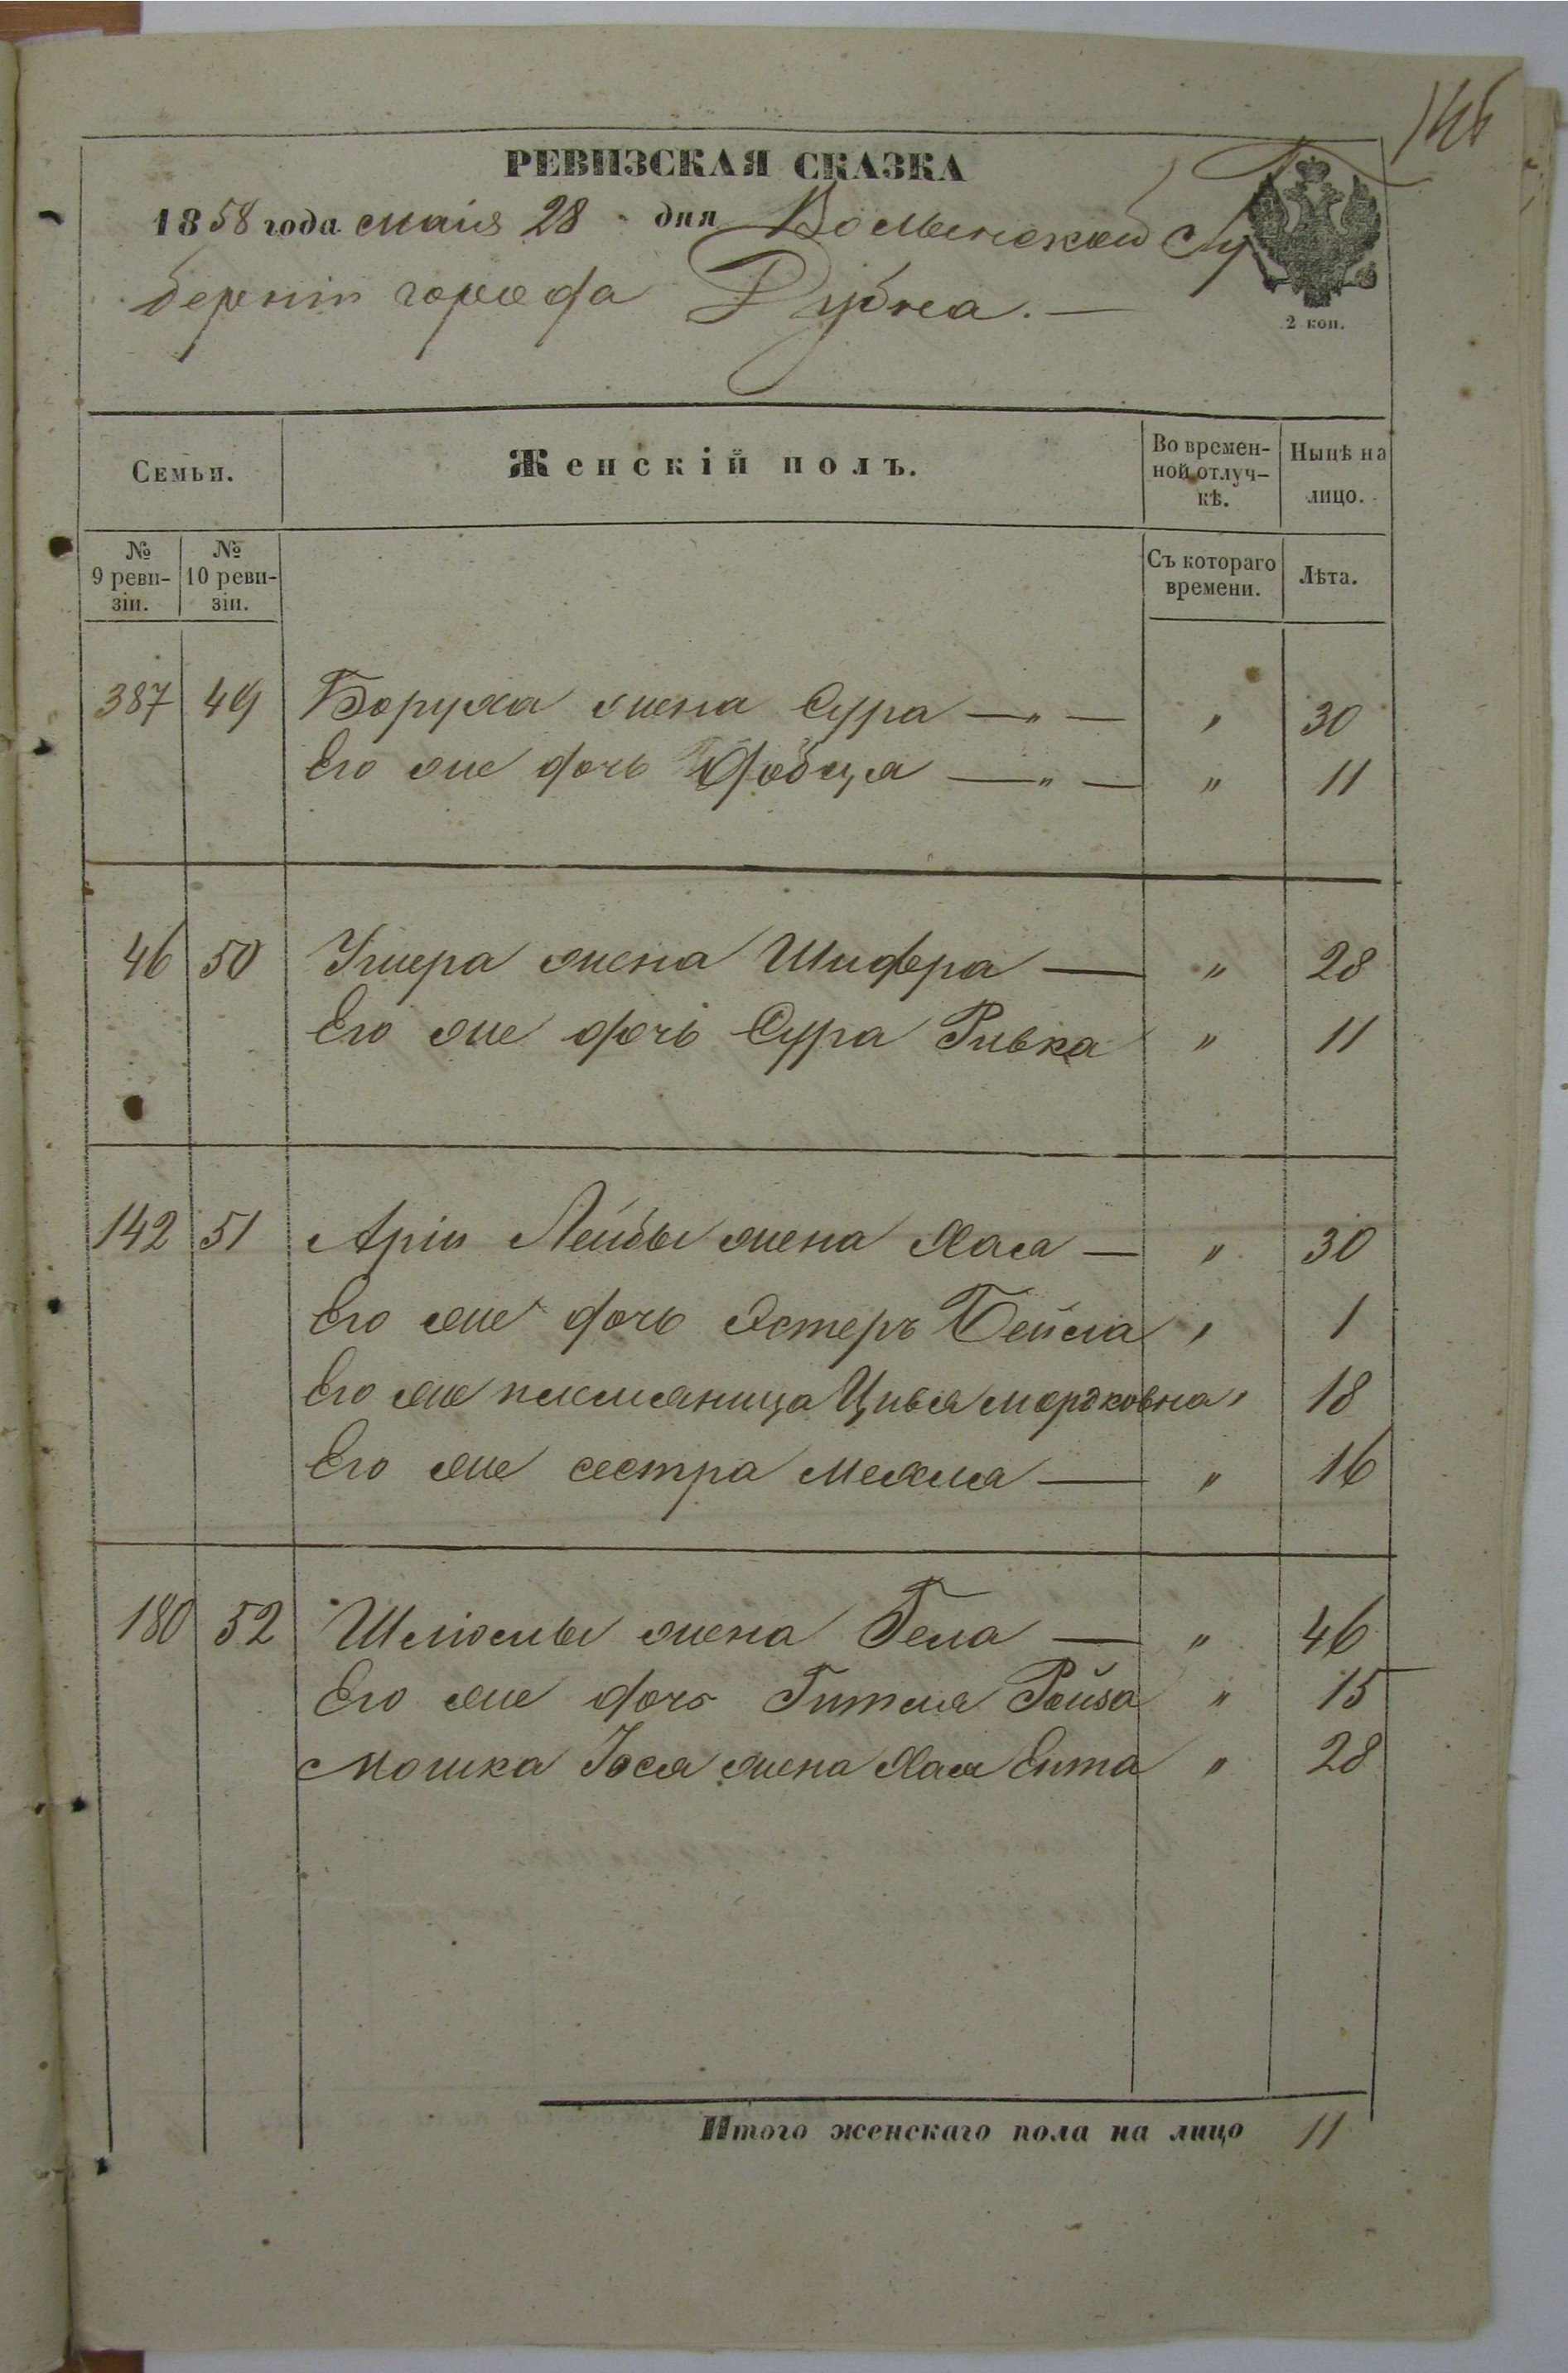 146
РЕВИЗСКАЯ СКАЗКА
1858 года маія 28 дня Волынской Гу
берніи города Дубна. —
2 коп.
Семьи. Женскій полъ. Во времен- Нынѣ на
ной отлуч- лицо.
кѣ.
№ № Съ котораго Лѣта.
9 реви- 10 реви- времени.
зіи. зіи.
387 49 Боруха жена Сура — „ — „ 30
Его же дочь Добця — „ — „ 11
46 50 Ушера жена Шифра — „ 28
Его же дочь Сура Ривка „ 11
142 51 Аріи Лейбы жена Хая — „ 30
Его же дочь Эстеръ Бейла „ 1
Его же племяница Цивья Мордковна „ 18
Его же сестра Михля — „ 16
180 52 Шліомы жена Гела — „ 46
Его же дочь Гитля Ройза „ 15
Мошка Іося жена Хая Ента „ 28
Итого женскаго пола на лицо 11